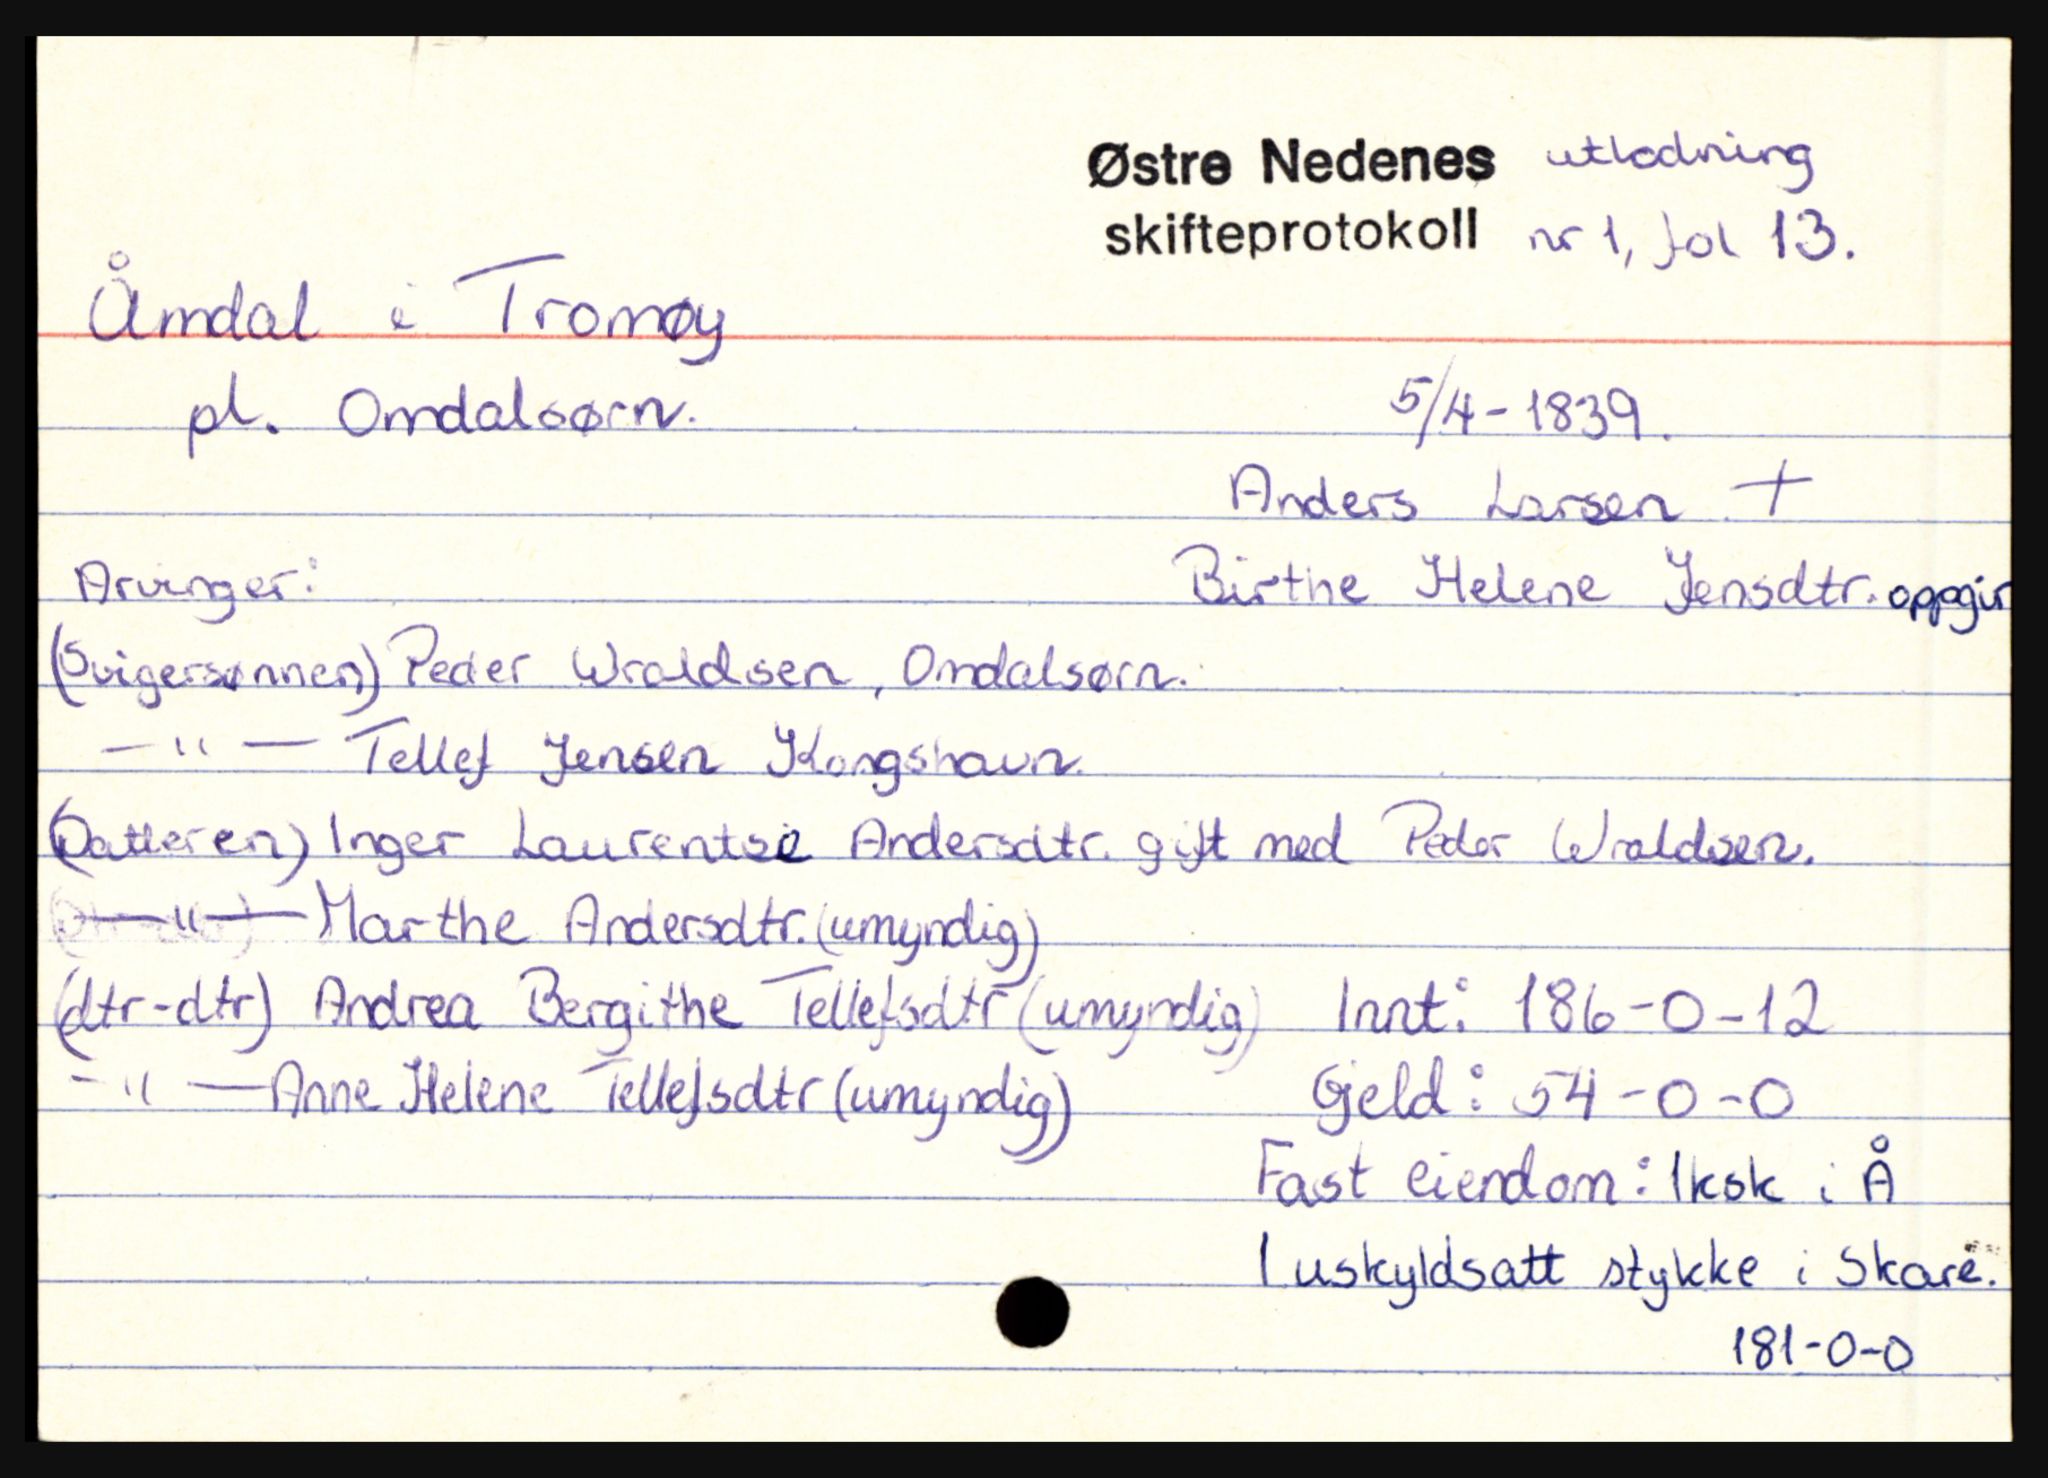 Østre Nedenes utlodning
skifteprotokoll nr 1, fol 13.
Åmdal i Tromøy
pl. Omdalsørn.
5/4-1839.
Anders Larsen +
Birthe Helene Jensdtr. oppgir
Arvinger:
(Svigersønnen) Peder Wroldsen, Omdalsørn.
— " — Tellef Jensen Kongshavn.
(Datteren) Inger Laurentsie Andersdtr. gift med Peder Wroldsen.
— " — Marthe Andersdtr. (umyndig)
(dtr-dtr) Andrea Bergithe Tellefsdtr (umyndig) Innt: 186-0-12
- " — Anne Helene Tellefsdtr (umyndig) Gjeld: 54-0-0
Fast eiendom: 1ksk i Å
1 uskyldsatt stykke i Skare.
181-0-0